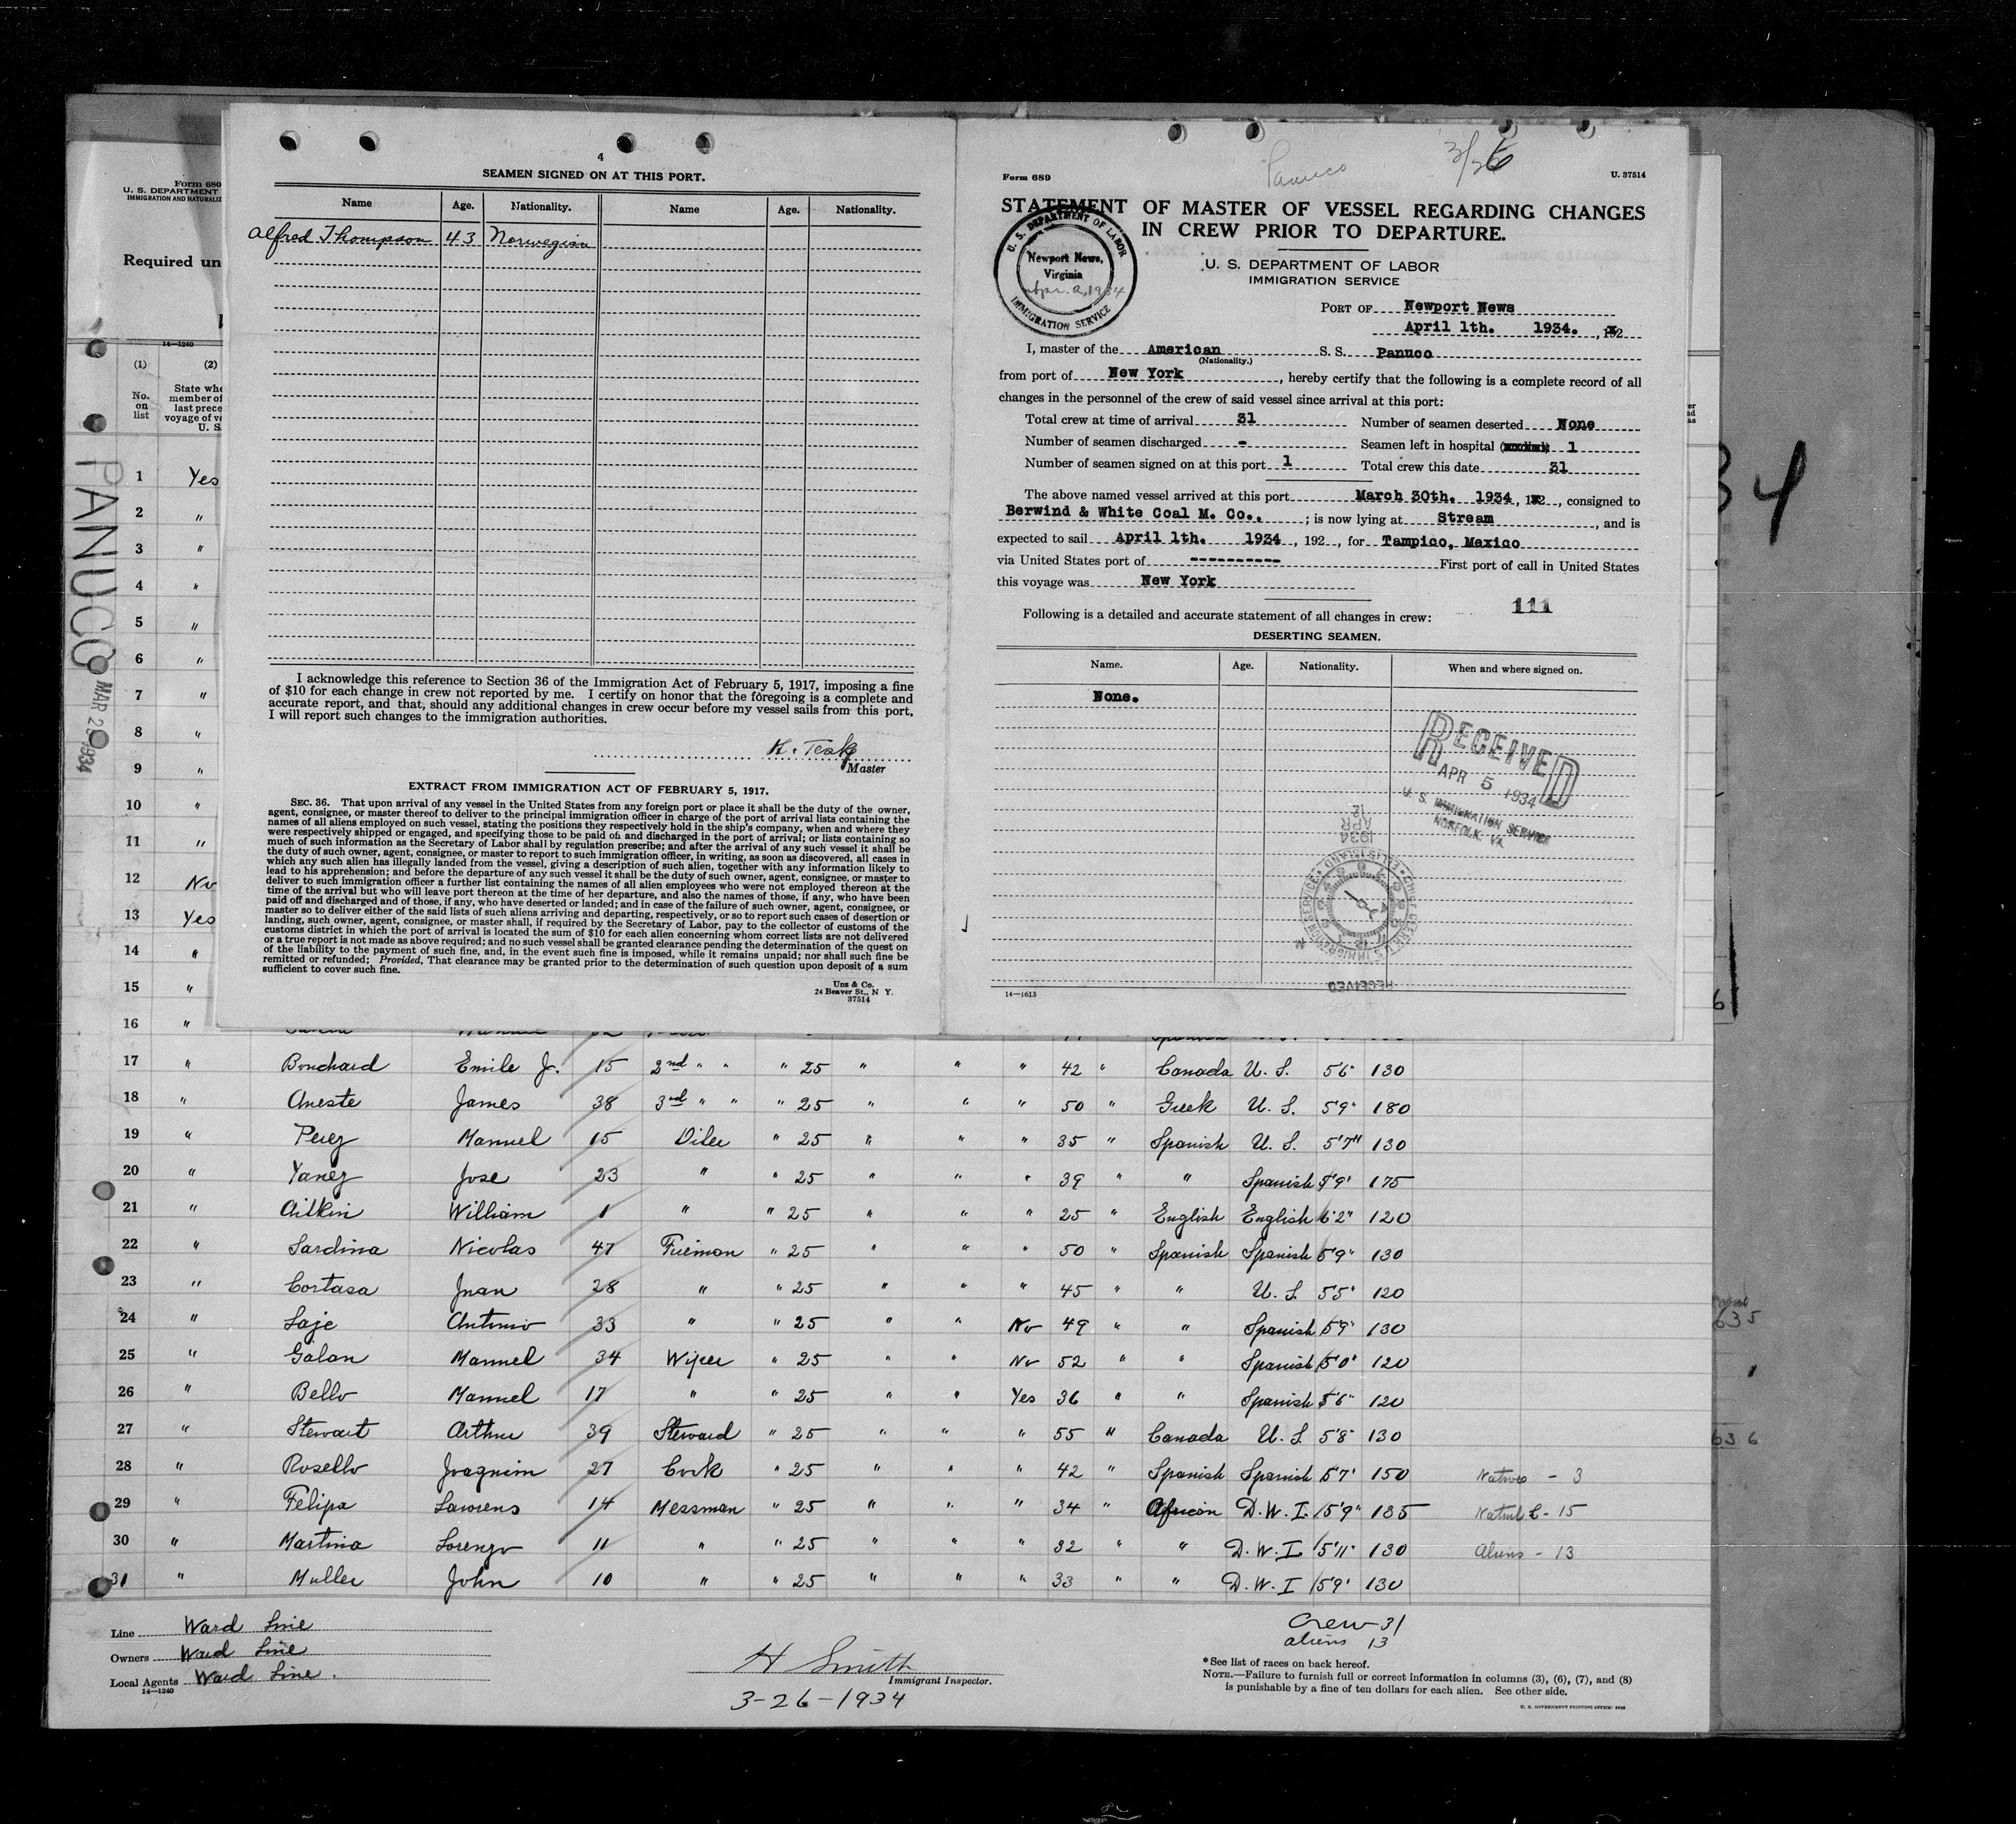 4
SEAMEN SIGNED ON AT THIS PORT.
Name Age. Nationality. Name Age. Nationality.
Alfred Thompson 43 Norwegian
I acknowledge this reference to Section 36 of the Immigration Act of February 5, 1917, imposing a fine
of $10 for each change in crew not reported by me. I certify on honor that the foregoing is a complete and
accurate report, and that, should any additional changes in crew occur before my vessel sails from this port,
I will report such changes to the immigration authorities.
Master
EXTRACT FROM IMMIGRATION ACT OF FEBRUARY 5, 1917.
SEC. 36. That upon arrival of any vessel in the United States from any foreign port or place it shall be the duty of the owner,
agent, consignee, or master thereof to deliver to the principal immigration officer in charge of the port of arrival lists containing the
names of all aliens employed on such vessel, stating the positions they respectively hold in the ship's company, when and where they
were respectively shipped or engaged, and specifying those to be paid off and discharged in the port of arrival; or lists containing so
much of such information as the Secretary of Labor shall by regulation prescribe; and after the arrival of any such vessel it shall be
the duty of such owner, agent, consignee, or master to report to such immigration officer, in writing, as soon as discovered, all cases in
which any such alien has illegally landed from the vessel, giving a description of such alien, together with any information likely to
lead to his apprehension; and before the departure of any such vessel it shall be the duty of such owner, agent, consignee, or master to
deliver to such immigration officer a further list containing the names of all alien employees who were not employed thereon at the
time of the arrival but who will leave port thereon at the time of her departure, and also the names of those, if any, who have been
paid off and discharged and of those, if any, who have deserted or landed; and in case of the failure of such owner, agent, consignee, or
master so to deliver either of the said lists of such aliens arriving and departing, respectively, or so to report such cases of desertion or
landing, such owner, agent, consignee, or master shall, if required by the Secretary of Labor, pay to the collector of customs of the
customs district in which the port of arrival is located the sum of $10 for each alien concerning whom correct lists are not delivered
or a true report is not made as above required; and no such vessel shall be granted clearance pending the determination of the quest on
of the liability to the payment of such fine, and, in the event such fine is imposed, while it remains unpaid; nor shall such fine be
remitted or refunded; Provided, That clearance may be granted prior to the determination of such question upon deposit of a sum
sufficient to cover such fine.
Unz & Co.
24 Beaver St., N Y.
37514
Panuco 3/26
Form 689 U. 37514
STATEMENT OF MASTER OF VESSEL REGARDING CHANGES
IN CREW PRIOR TO DEPARTURE.
U. S. DEPARTMENT OF LABOR
IMMIGRATION SERVICE
U. S. DEPARTMENT OF LABOR
Newport News,
Virginia
Apr. 2, 1934
IMMIGRATION SERVICE
PORT OF Newport News
April 1th. 1934. , 192
I, master of the American S. S. Panuco
(Nationality.)
from port of New York , hereby certify that the following is a complete record of all
changes in the personnel of the crew of said vessel since arrival at this port:
Total crew at time of arrival 31 Number of seamen deserted None
Number of seamen discharged - Seamen left in hospital 1
Number of seamen signed on at this port 1 Total crew this date 31
The above named vessel arrived at this port March 30th. 1934 , 192 , consigned to
Berwind & White Coal M. Co.. ; is now lying at Stream , and is
expected to sail April 1th. 1934 , 192 , for Tampico, Mexico
via United States port of ---------- First port of call in United States
this voyage was New York
111
Following is a detailed and accurate statement of all changes in crew:
DESERTING SEAMEN.
Name. Age. Nationality. When and where signed on.
None.
RECEIVED
APR 5 1934
U. S. IMMIGRATION SERVICE
NORFOLK VA
1934
APR
12
RECEIVED
14—1613
Form 680
U. S. DEPARTMENT
IMMIGRATION AND NATURALIZ
Required un
14—1240
(1) (2)
No. on list
State whe
member of
last prece
voyage of ve
U. S.
PANUCO
MAR 25 1934
34
1 Yes
2 "
3 "
4 "
5 "
6 "
7 "
8 "
9 "
10 "
11 "
12 No
13 Yes
14 "
15 "
16 "
17 " Bouchard Emile J. 15 2nd " " " 25 " " " 42 " Canada U. S. 5'6" 130
18 " Aneste James 38 3rd " " " 25 " " " 50 " Greek U. S. 5'9" 180
19 " Perez Manuel 15 Oiler " 25 " " " 35 " Spanish U. S. 5'7" 130
20 " Yanez Jose 23 " " 25 " " " 39 " " Spanish 5'9" 175
21 " Aitkin William 1 " " 25 " " " 25 " English English 6'2" 120
22 " Sardina Nicolas 47 Fireman " 25 " " " 50 " Spanish Spanish 5'9" 130
23 " Cortasa Juan 28 " " 25 " " " 45 " " U. S. 5'5" 120
24 " Laje Antonio 33 " " 25 " " No 49 " " Spanish 5'9" 130
25 " Galan Manuel 34 Wiper " 25 " " No 52 " " Spanish 5'0" 120
26 " Bello Manuel 17 " " 25 " " Yes 36 " " Spanish 5'6" 120
27 " Stewart Arthur 39 Steward " 25 " " " 55 " Canada U. S. 5'8" 130
28 " Rosello Joaquim 27 Cook " 25 " " " 42 " Spanish Spanish 5'7" 150 Natives - 3
29 " Felipa Laurens 14 Messman " 25 " " " 34 " African D. W. I. 5'9" 135 - 15
30 " Martina Lorenzo 11 " " 25 " " " 32 " " D. W. I. 5'11" 130 Aliens - 13
31 " Muller John 10 " " 25 " " " 33 " " D. W. I 5'9" 130
Line Ward Line
Owners Ward Line
Local Agents Ward Line.
14—1240
H Smith
Immigrant Inspector.
3-26-1934
Crew-31
aliens 13
*See list of races on back hereof.
NOTE.—Failure to furnish full or correct information in columns (3), (6), (7), and (8)
is punishable by a fine of ten dollars for each alien. See other side.
U. S. GOVERNMENT PRINTING OFFICE:
635
636